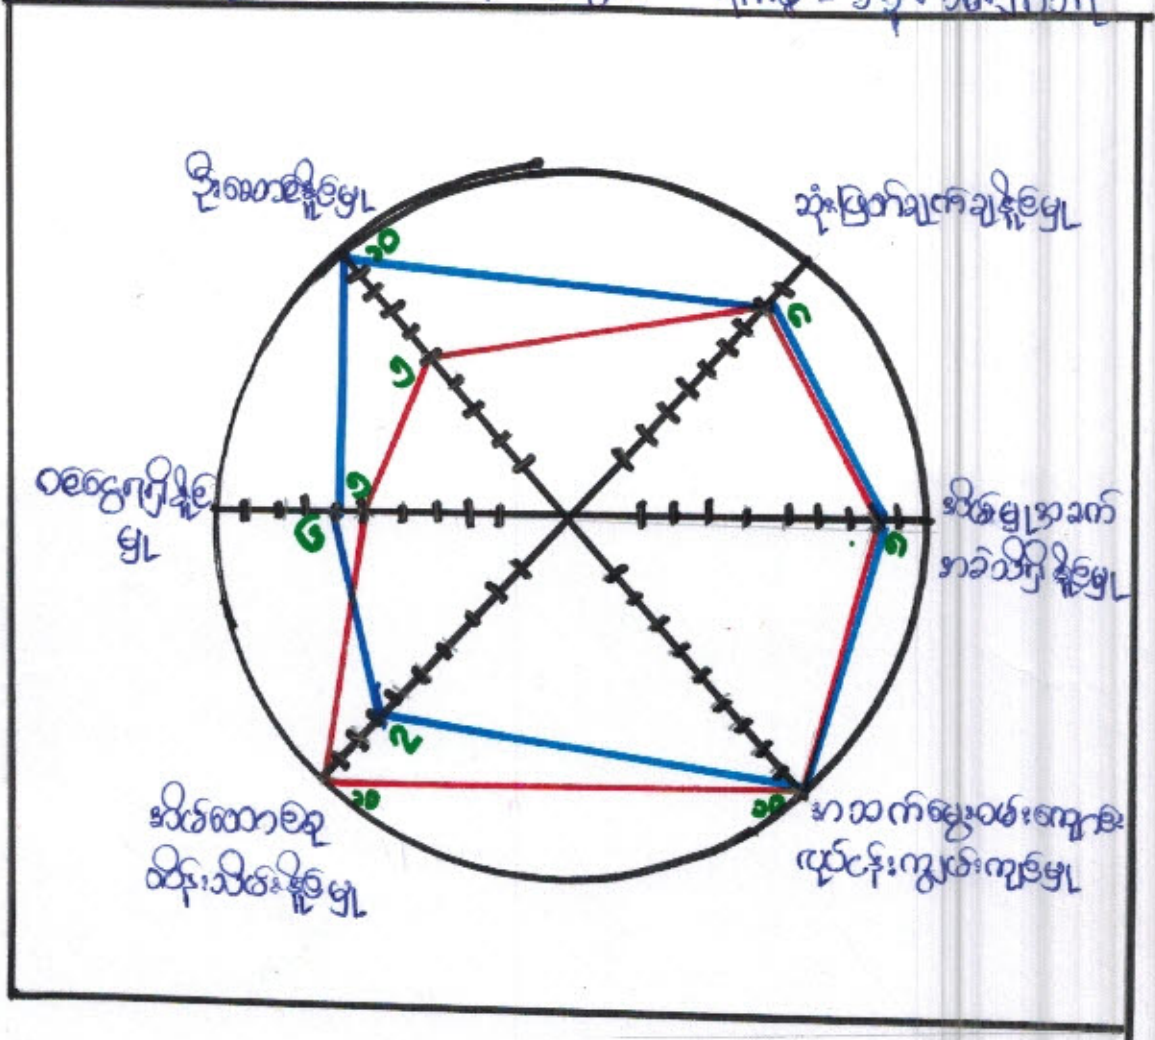 ဦးဆောင်နိုင်မှု
ဆုံးဖြတ်ချက်ချနိုင်မှု
၁၀
၈
၅
ဝင်ငွေရရှိနိုင်
မှု
၅
အိမ်မှုအခက်
အခဲသိရှိနိုင်မှု
၆
၉
၇
၁၀
၁၀
အိမ်ထောင်စု
ထိန်းသိမ်းနိုင်မှု
အသက်မွေးဝမ်းကျောင်း
လုပ်ငန်းကျွမ်းကျင်မှု